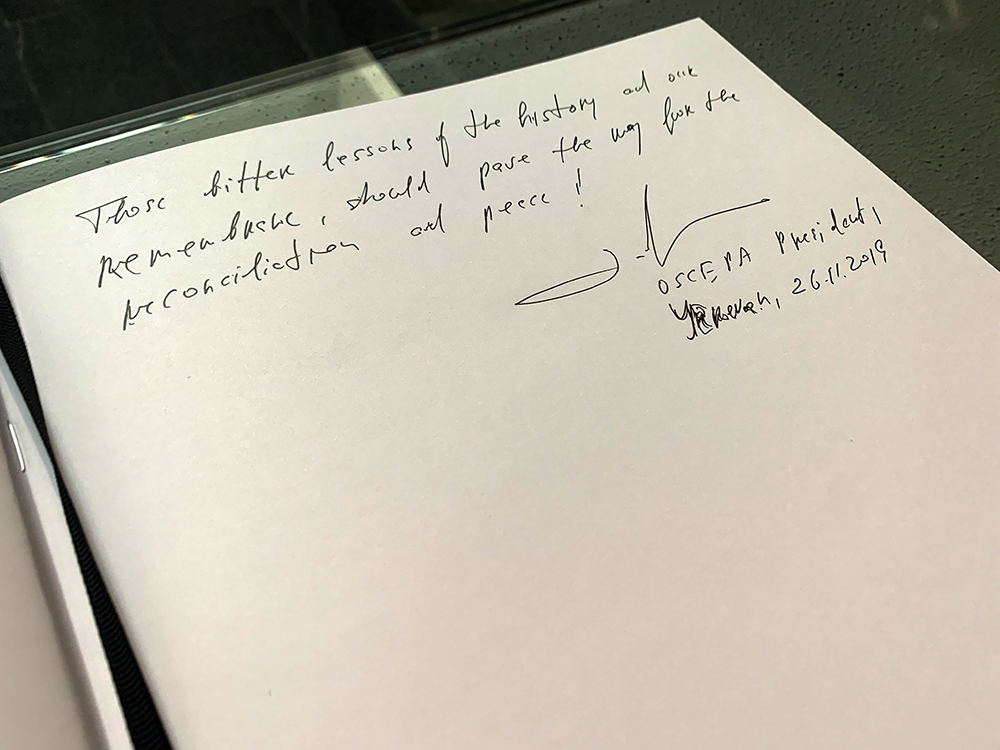 Those bitter lessons of the history ad our
remembrane, should pave the way for the
reconciliation ad peace!
OSCE PA President,
Yerevan, 26.11.2019